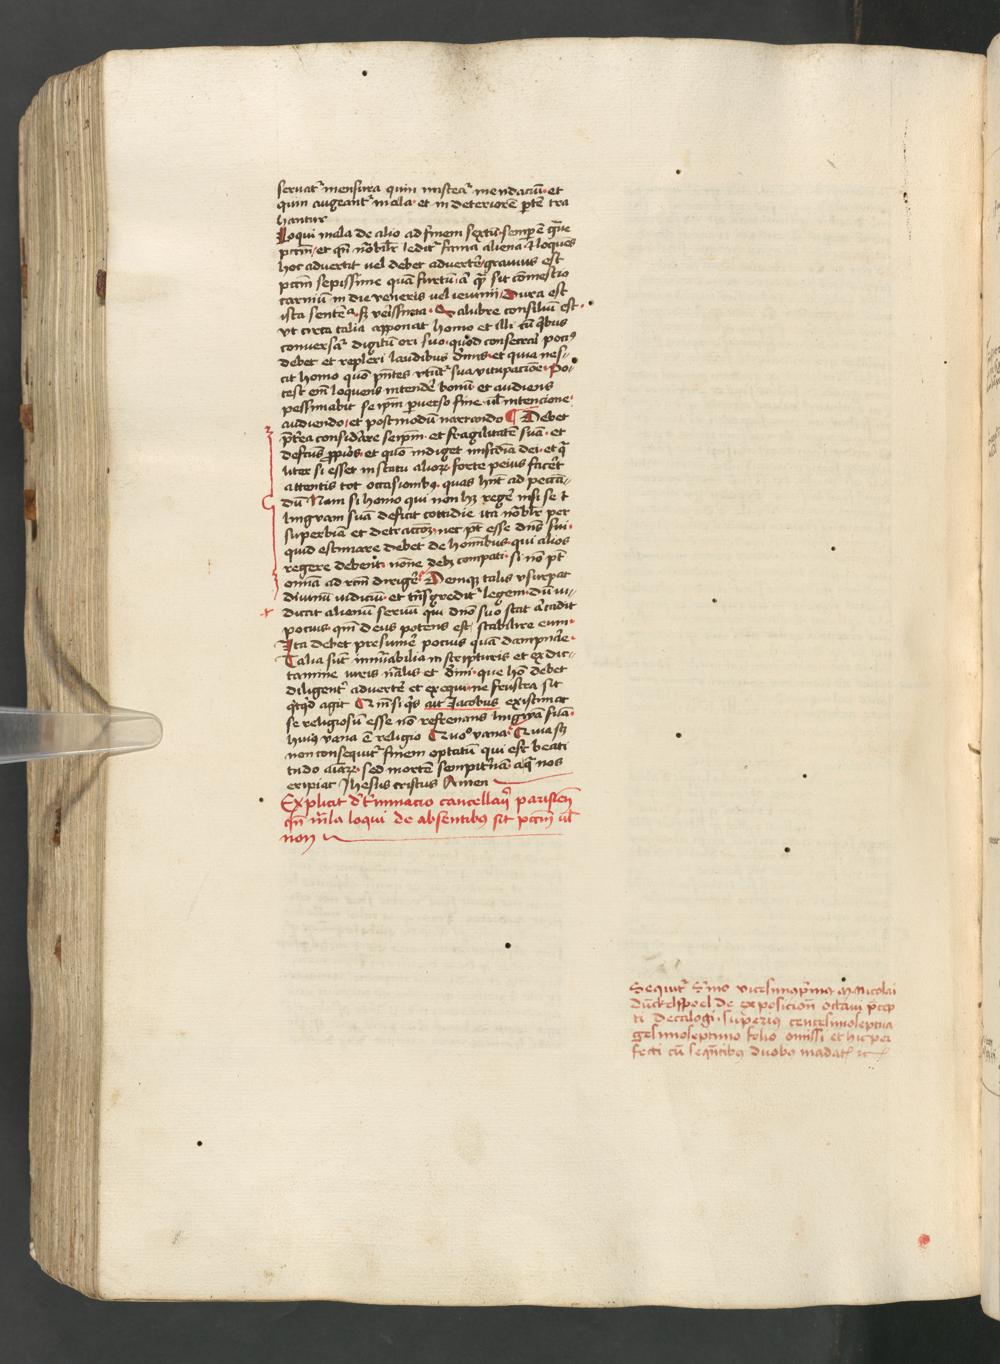 seruat᷑ mensura quin misceat᷑ mendaciū· et
quin augeant᷑ mala· et in deteriorē ꝑtē tra
hantur
Loqui mala de alio ad finem sextū· semp̄ ē gͣue
pctm̄· et qn̄ nōbilr̄ ledit᷑ fama aliena· ⁊ loquēs
hoc aduertit uel debet aduertē· grauius est
pctm̄ sepissime quā furtū· a' qͣ sit cōmestio
carniū in die veneris uel ieiunij· Dura est
ista sentēꝰa· sꝫ v̄issīa· Salubre consiliū est·
vt circa talia apponat homo et illi cū qͥbus
conuersat᷑ digitū ori suo· quod consecrari pociꝰ
debet et repleri laudibus diuīs· et quia nes//
cit homo quō pn̄tes vtūt᷑ sua vitupacione· Po//
test em̄ loquens intendē bonū et audiens
pessimabit seip̄m ꝑuerso fine ul' intencione
audiendo· et postmodū narrando ¶ Debet
p̄terea considerare seip̄m· et fragilitatē suā· et
defectus ꝓprios· et quō indiget misc̄dia dei· et qͣ
liter si esset in statu alioꝝ· forte peius facēt
attentis tot occasionibꝰ· quas hn̄t ad peccā//
dū Nam si homo qui non hꝫ regē nisi se ⁊
lingwam suā deficit cottidie ita nōbilr̄ per
superbiā et detraccōꝫ· nec pt̄ esse dn̄s sui·
quid estimare debet de hoīnibus qui alios
regere debent· nōne debꝫ compati· si nō pt̄
omnia ad rc̄m dirigē· Deniqꝫ talis vsurpat
diuinū iudiciū· et tn̄sgredit᷑ legem· dū iu//
dicat alienū seruū qui dn̄o suo stat a' cadit
pocius· qm̄ deus potens est, stabilire eum·
Ita debet presumē pocius quā dampnare·
Talia sūt innūabilia in scripturis et ex dic//
tamine iuris nālis et diuini· que hō debet
diligent᷑ aduertē et exequi· ne frustra sit
qͥtqͥd agit Qm̄ si qͥs ait Jacobus existimat
se religiosū esse nō refrenans lingwā suā·
huiꝰ vana ē religio Quō vana· Quia sꝫ
non consequit᷑ finem optatū qui est beati
tudo aīaꝝ· sed mortē sempit᷑nā· a qͣ nos
eripiat Jhesus cristus Amen
Explicit det᷑minacio cancellarij parisien̄
qn̄ mala loqui de absentibꝰ sit pctm̄ ul'
non
Sequit᷑ Sermo vicesimꝰpͥmꝰ M. Nicolai
dūckelspoel de exposicion̄ octaui p̄cep
ti decalogi· superiꝰ centesimoseptua
gesimoseptimo folio omissi et hic per
fecti cū seqn̄tibꝰ duobꝰ mādat᷑ ꝛc